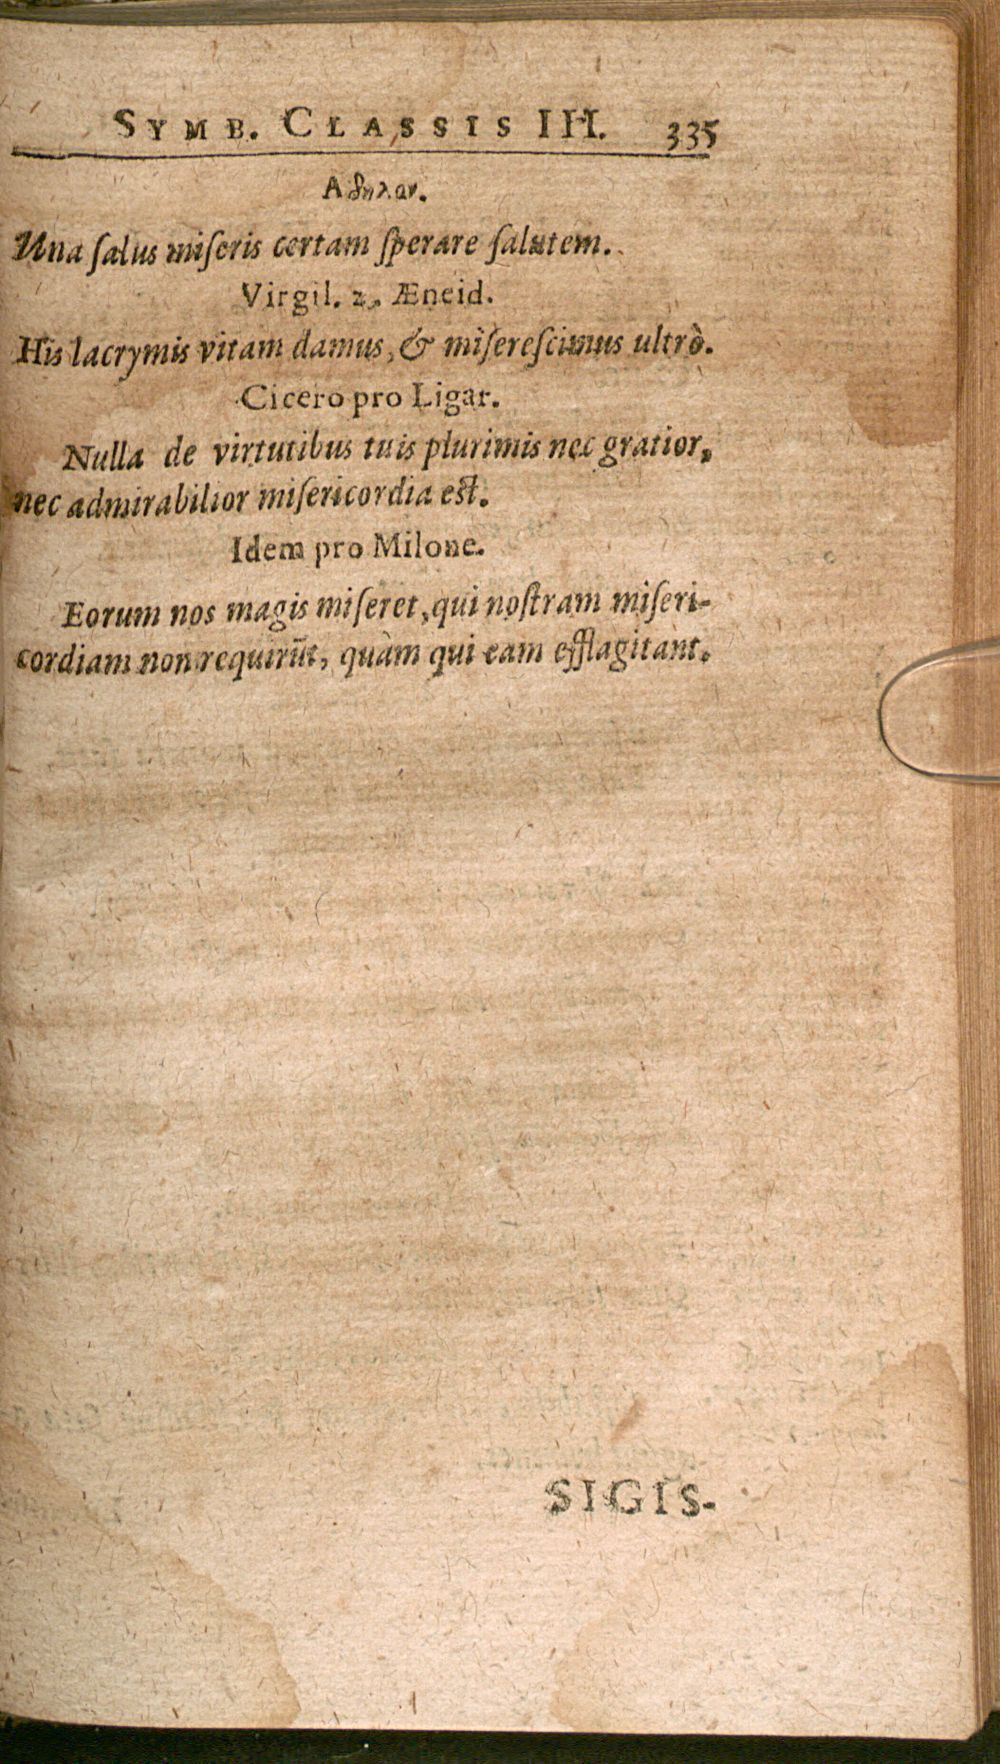 SYMB. CLASSIS III. 335
Αδηλον.
Una ſalus miſeris certam ſperare ſalutem.
Virgil. 2. Æneid.
His lacrymis vitam damus, & miſereſcimus ultrò.
Cicero pro Ligar.
Nulla de virtutibus tuis plurimis nec gratior,
nec admirabilior miſericordia eſt.
Idem pro Milone.
Eorum nos magis miſeret, qui noſtram miſeri-
cordiam non requirūt, quàm qui eam efflagitant.
SIGIS-